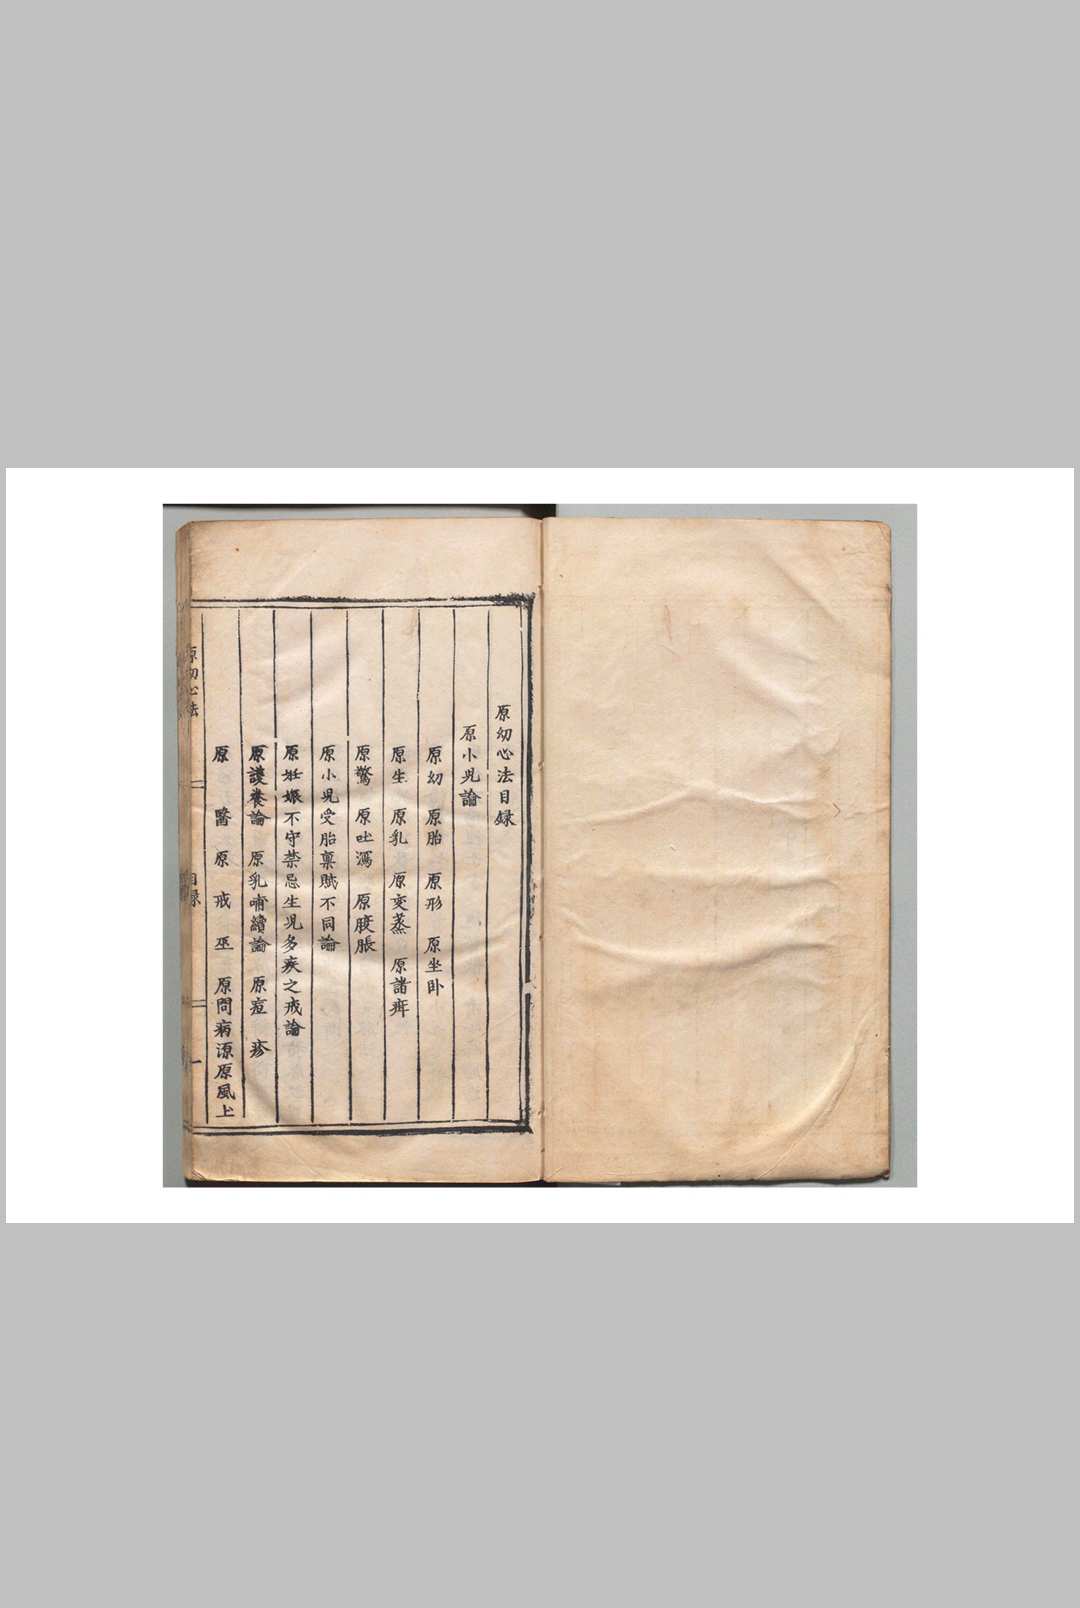 原幼心法目録
原小児論
原幼 原胎 原形 原坐卧
原生 原乳 原変蒸 原諸疳
原驚 原吐瀉 原腹脹
原小児受胎禀賦不同論
原妊娠不守禁忌生児多疾之戒論
原護養論 原乳哺續論 原痘 疹
原 醫 原 戒 巫 原問病源原風上
原幼心法 目録 一